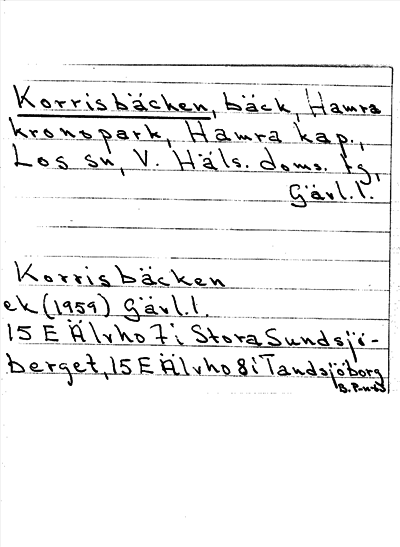 Korrisbäcken, bäck, Hamra
kronopark, Hamra kap.,
Los sn, V. Häls. doms. tg,
Gävl.l.
Korrisbäcken
ek (1959) Gävl.l.
15 E Älvho 7 i Stora Sundsjö-
berget, 15 E Älvho 8 i Tandsjöborg